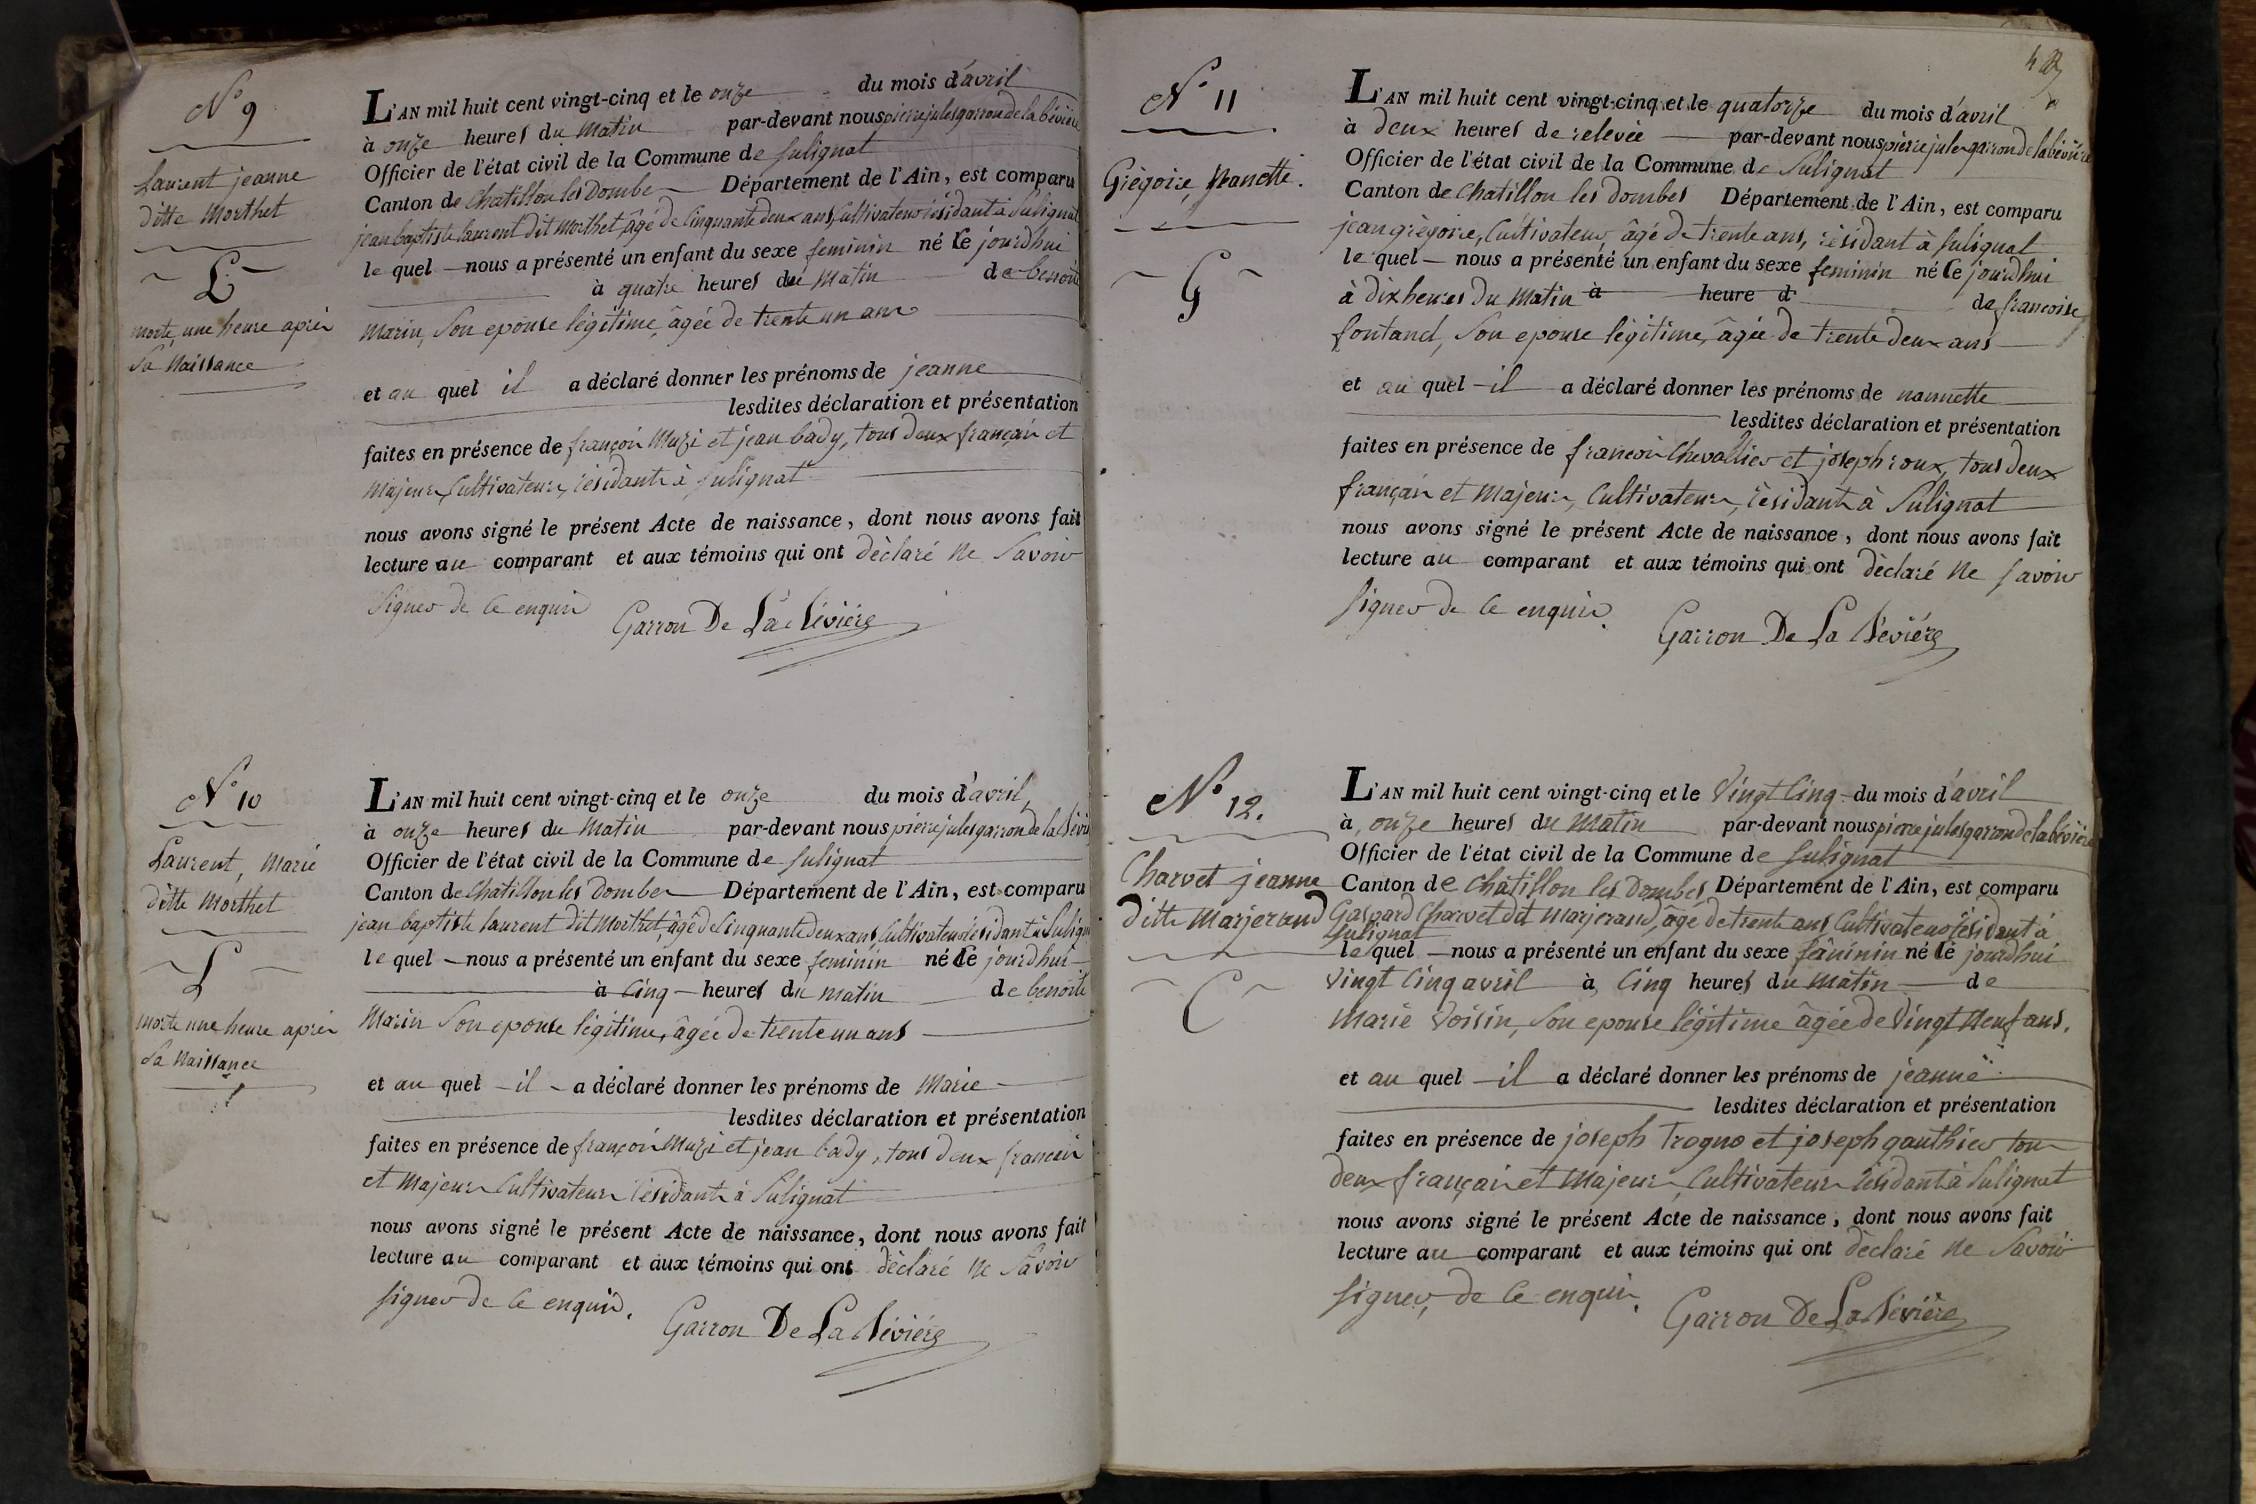 N° 9
Laurent jeanne
ditte Morthet
L
morte une heure après
sa naissance
L'AN mil huit cent vingt-cinq et le onze du mois d'avril
à onze heures du matin par-devant nous pierre jules garron de la bévière
Officier de l'état civil de la Commune de Sulignat
Canton de Chatillon les Dombes Département de l'Ain, est comparu
jean baptiste laurent dit Morthet, âgé de Cinquante deux ans, Cultivateur résidant à Sulignat
le quel nous a présenté un enfant du sexe feminin né le jourdhui
à quatre heures du matin de benoite
Marin, Son epouse légitime, âgée de trente un ans
et au quel il a déclaré donner les prénoms de jeanne
lesdites déclaration et présentation
faites en présence de françois Muzi et jean bady, tous deux français et
Majeurs, Cultivateurs, résidants à Sulignat
nous avons signé le présent Acte de naissance, dont nous avons fait
lecture au comparant et aux témoins qui ont dèclaré ne Savoir
Signer de Ce enquis
Garron De La Bévière
N° 10
Laurent, Marie
ditte Morthet
L
morte une heure après
sa naissance
L'AN mil huit cent vingt-cinq et le onze du mois d'avril,
à onze heures du matin par-devant nous pierre jules garron de la bévi
Officier de l'état civil de la Commune de Sulignat
Canton de Chatillon les Dombes Département de l'Ain, est comparu
jean baptiste laurent dit Morthet, âgé de Cinquante deux ans Cultivateur résidant à Sulign
le quel nous a présenté un enfant du sexe feminin né le jourdhui
à Cinq heures du matin de benoite
Marin Son epouse légitime, âgée de trente un ans
et au quel il a déclaré donner les prénoms de Marie
lesdites déclaration et présentation
faites en présence de françois Muzi et jean bady, tous deux francois
et Majeurs Cultivateurs résidants à Sulignat
nous avons signé le présent Acte de naissance, dont nous avons fait
lecture au comparant et aux témoins qui ont dèclaré ne Savoir
Signer de Ce enquis.
Garron De La Bévière
4
N° 11
Grègoire, Nanette.
G
L'AN mil huit cent vingt-cinq et le quatorze du mois d'avril
à deux heures de relevée par-devant nous pierre jules garron de la bévière
Officier de l'état civil de la Commune de Sulignat
Canton de Chatillon les Dombes Département de l'Ain, est comparu
jean grègoire, Cultivateur, âgé de trente ans, résidant à Sulignat
le quel nous a présenté un enfant du sexe feminin né le jourdhui
à dix heures du matin à heure d de francoise
fontanel, Son epouse légitime, âgée de trente deux ans
et au quel il a déclaré donner les prénoms de nannette
lesdites déclaration et présentation
faites en présence de francois Chevallier et joseph roux, tous deux
français et Majeurs, Cultivateurs, résidants à Sulignat
nous avons signé le présent Acte de naissance, dont nous avons fait
lecture au comparant et aux témoins qui ont dèclaré ne Savoir
Signer de Ce enquis.
Garron De La Bévière
N° 12.
Charvet jeanne
ditte Marjerand
C
L'AN mil huit cent vingt-cinq et le Vingt Cinq du mois d'avril
à onze heures du matin par-devant nous pierre jules garron de la bévière
Officier de l'état civil de la Commune de Sulignat
Canton de Châtillon les Dombes, Département de l'Ain, est comparu
Gaspard Charvet dit Marjerand, âgé de trente ans Cultivateur résidant à
Sulignat
le quel nous a présenté un enfant du sexe féminin né le jourdhui
vingt Cinq avril à Cinq heures du matin de
Marie Voisin, Son epouse légitime âgée de Vingt Neuf ans.
et au quel il a déclaré donner les prénoms de jeanne
lesdites déclaration et présentation
faites en présence de joseph Trogno et joseph gauthier tous
deux français et Majeurs, Cultivateurs résidants à Sulignat
nous avons signé le présent Acte de naissance, dont nous avons fait
lecture au comparant et aux témoins qui ont dèclaré ne Savoir
Signer, de Ce enquis.
Garron De La Bévière